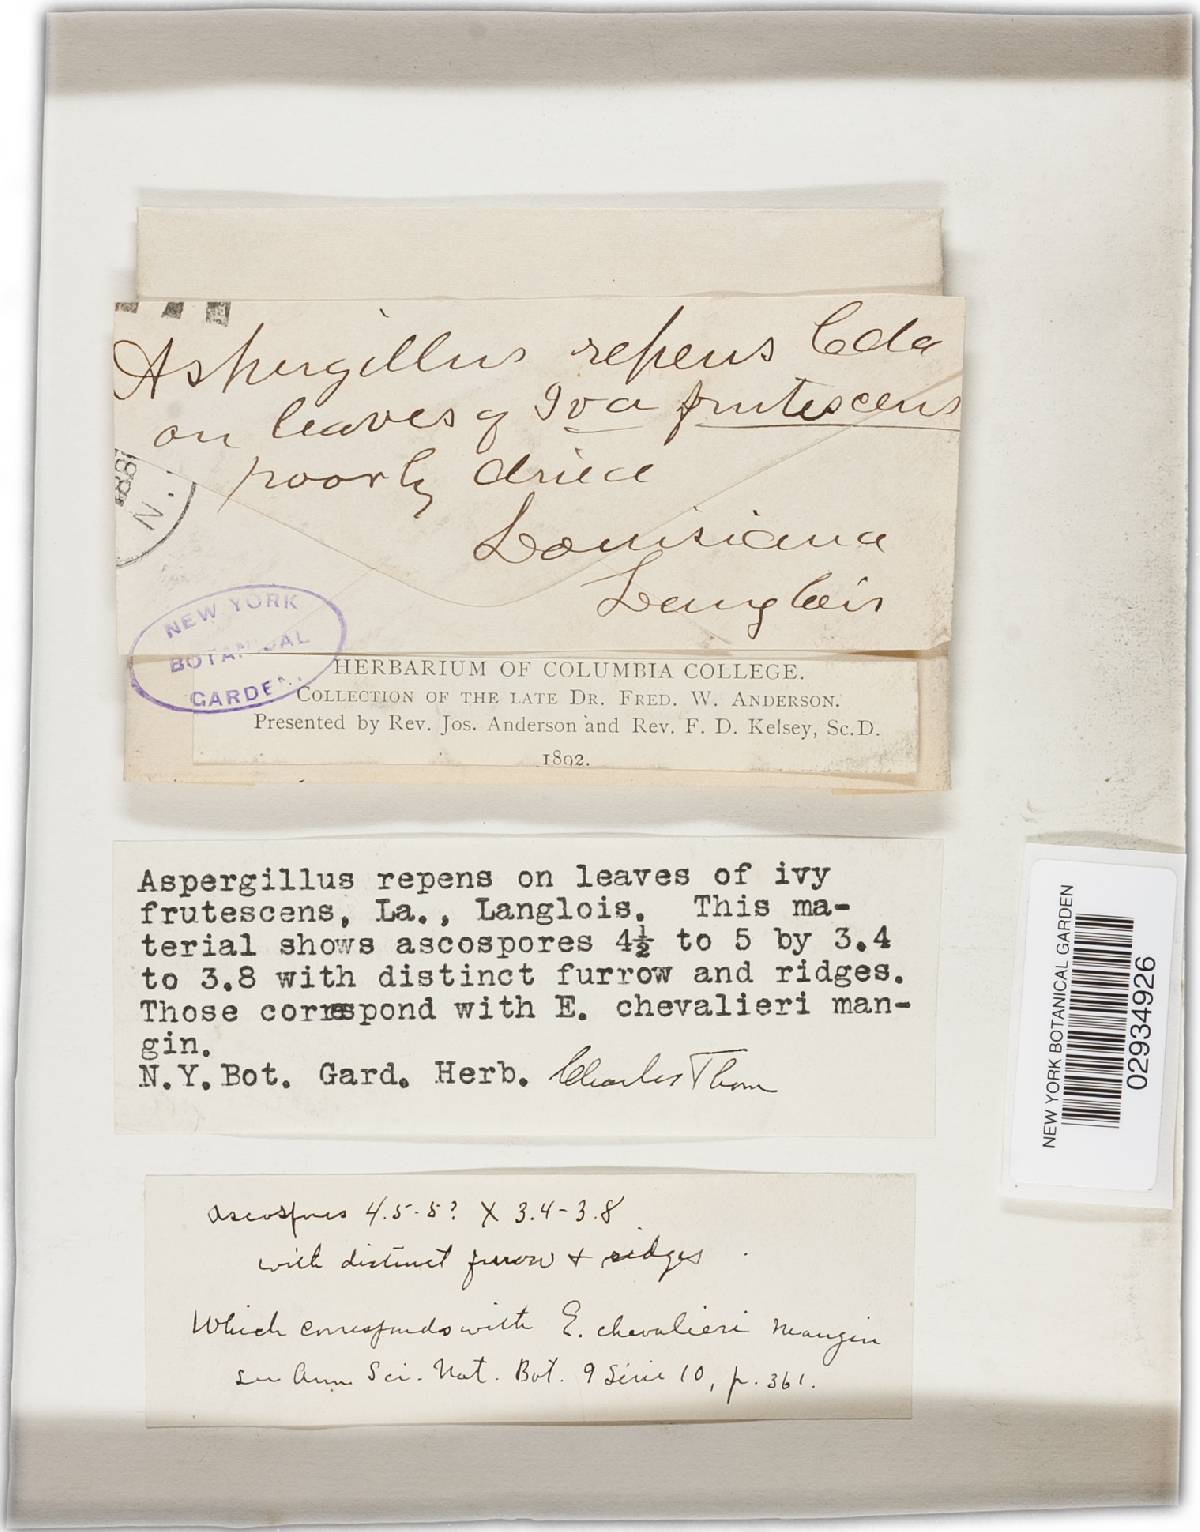 Aspergillus repens Cda
on leaves of Iva frutescens
poorly dried
Louisiana
Langlois
NEW YORK
BOTANICAL
GARDEN.
HERBARIUM OF COLUMBIA COLLEGE.
COLLECTION OF THE LATE DR. FRED. W. ANDERSON.
Presented by Rev. Jos. Anderson and Rev. F. D. Kelsey, Sc.D.
1892.
Aspergillus repens on leaves of ivy
frutescens, La., Langlois. This ma-
terial shows ascospores 4½ to 5 by 3.4
to 3.8 with distinct furrow and ridges.
Those correspond with E. chevalieri man-
gin.
N.Y. Bot. Gard. Herb. Charles Thom
NEW YORK BOTANICAL GARDEN
02934926
ascospores 4.5-5? X 3.4-3.8
with distinct furrow + ridges.
Which corresponds with E. chevalieri Mangin
see Ann. Sci. Nat. Bot. 9 Série 10, p. 361.